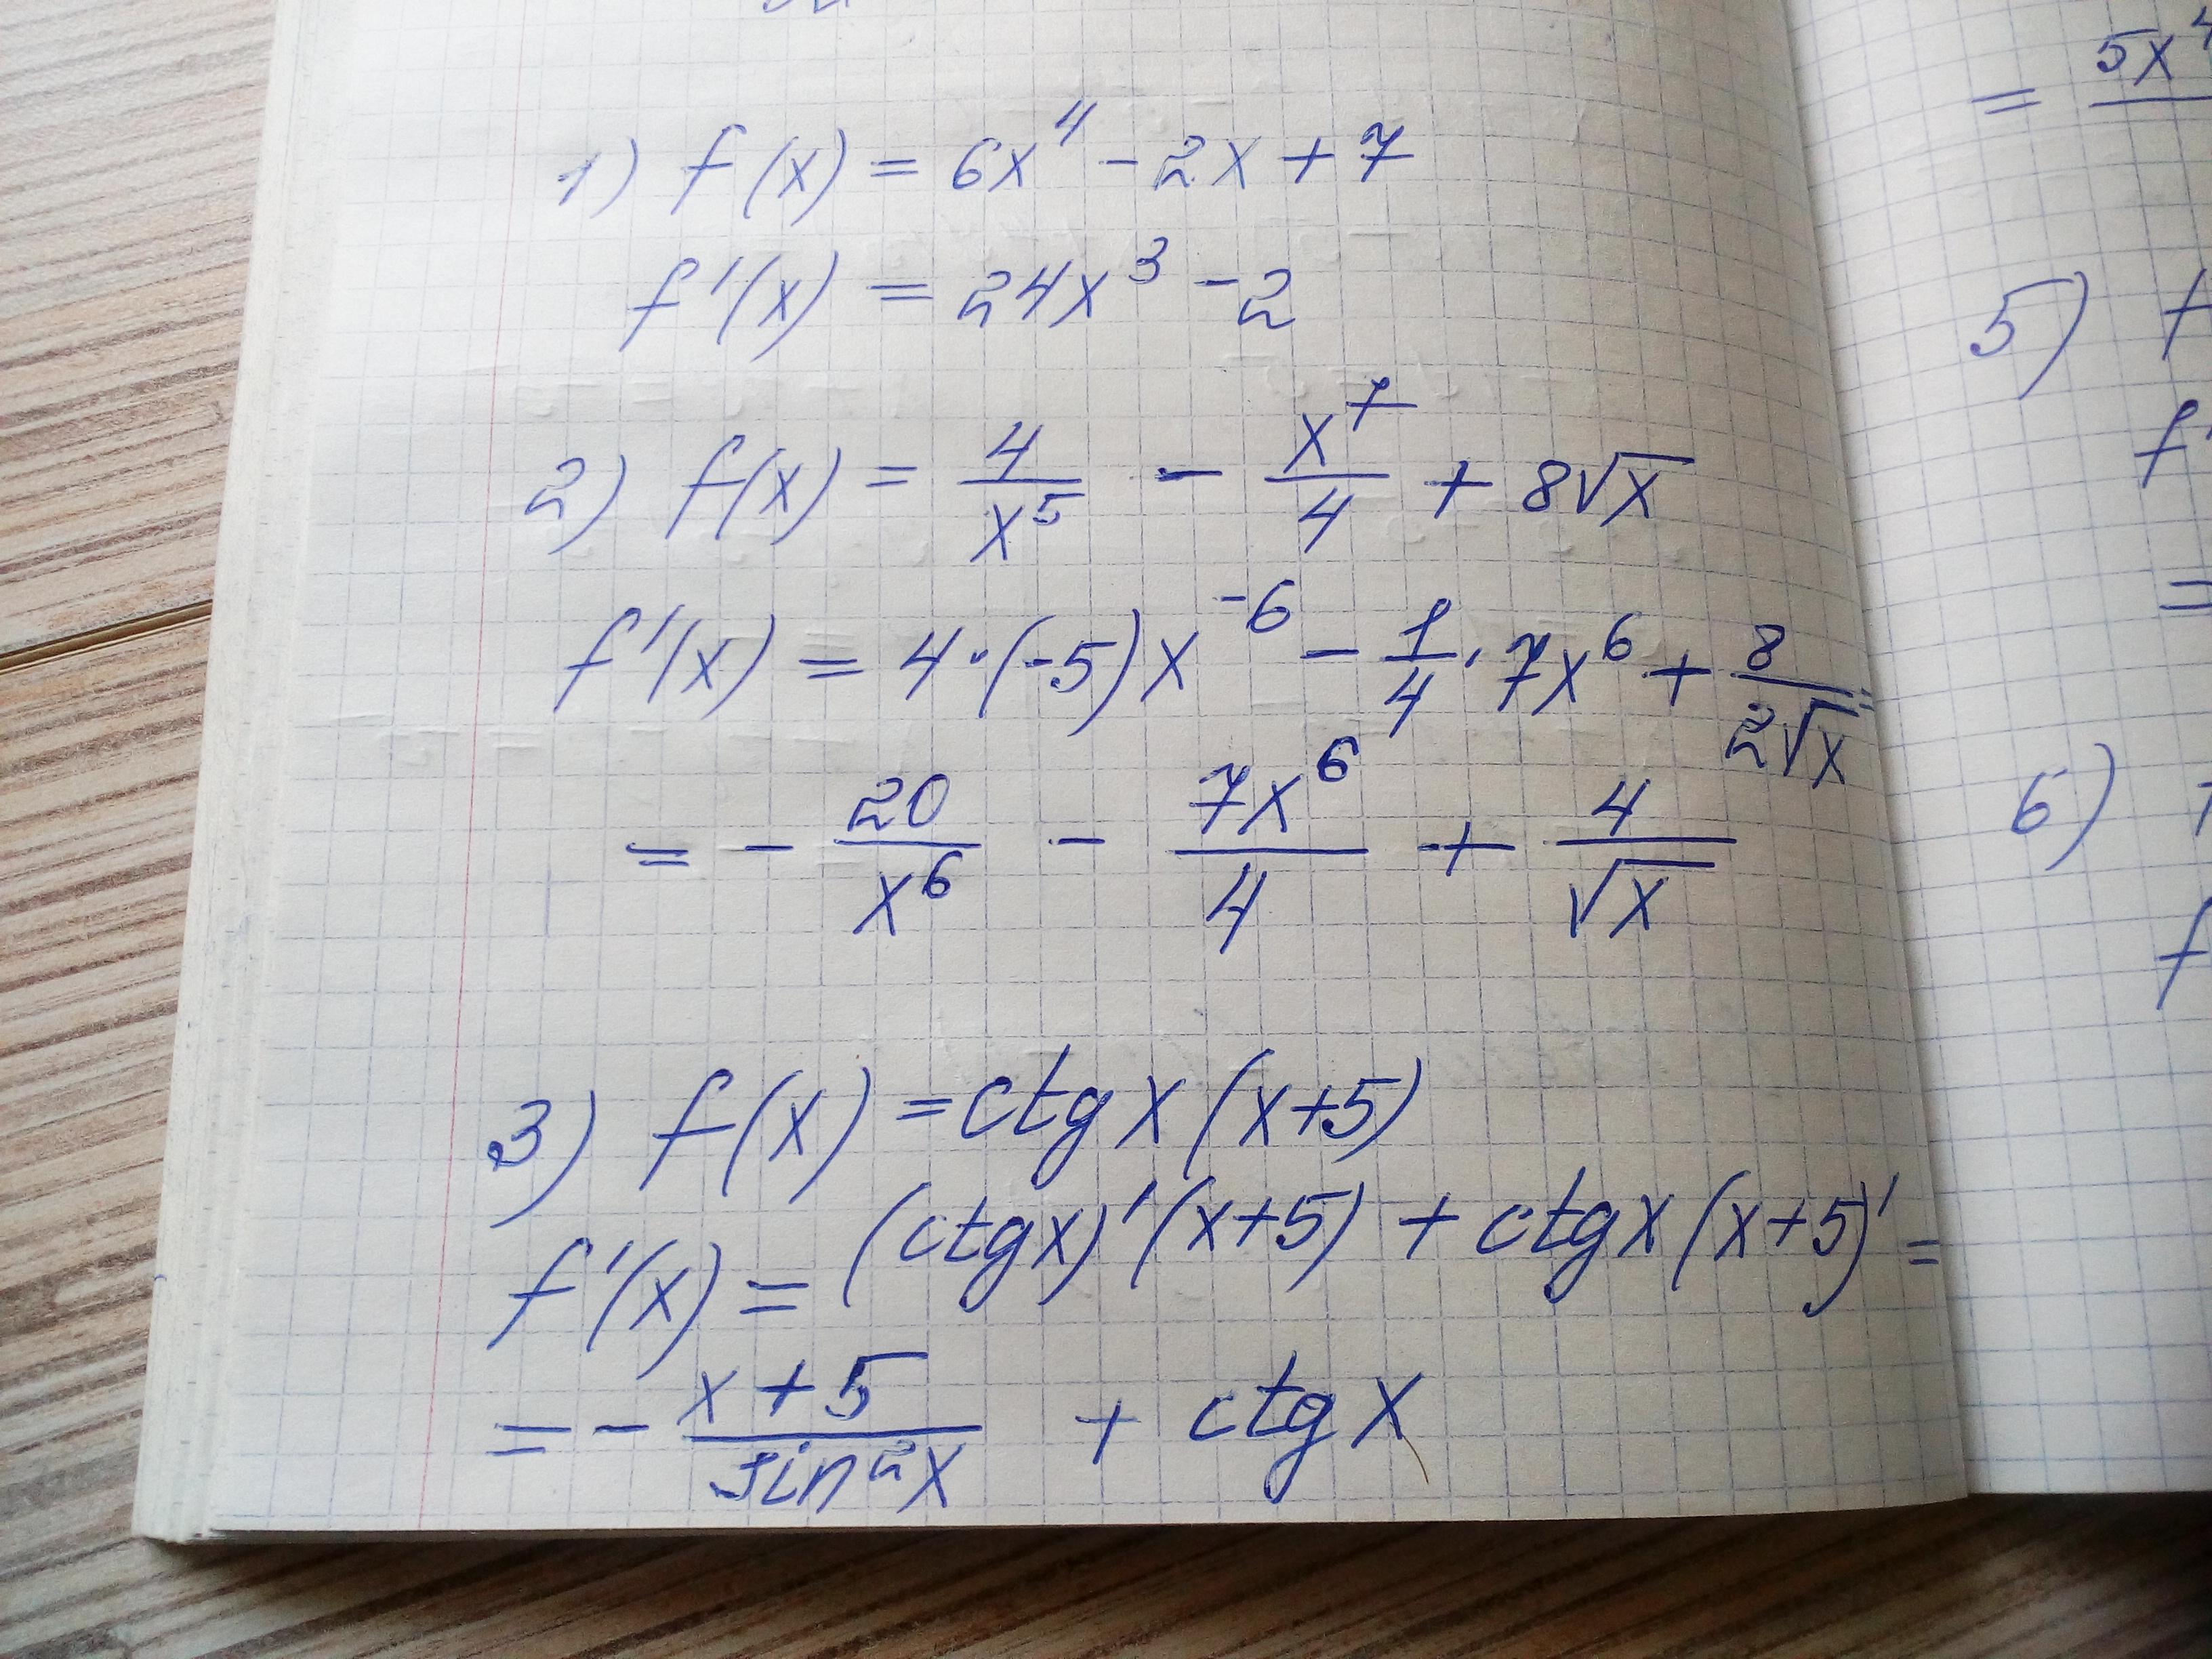 1) f(x) = 6x⁴ - 2x + 7
f'(x) = 24x³ - 2
2) f(x) = 4/x⁵ - x⁷/4 + 8√x
f'(x) = 4·(-5)x⁻⁶ - 1/4·7x⁶ + 8/(2√x) =
= - 20/x⁶ - 7x⁶/4 + 4/√x
3) f(x) = ctg x (x+5)
f'(x) = (ctg x)'(x+5) + ctg x (x+5)' =
= - (x+5)/(sin²x) + ctg x
= 5x⁴
5) f
f'
=
6)
f